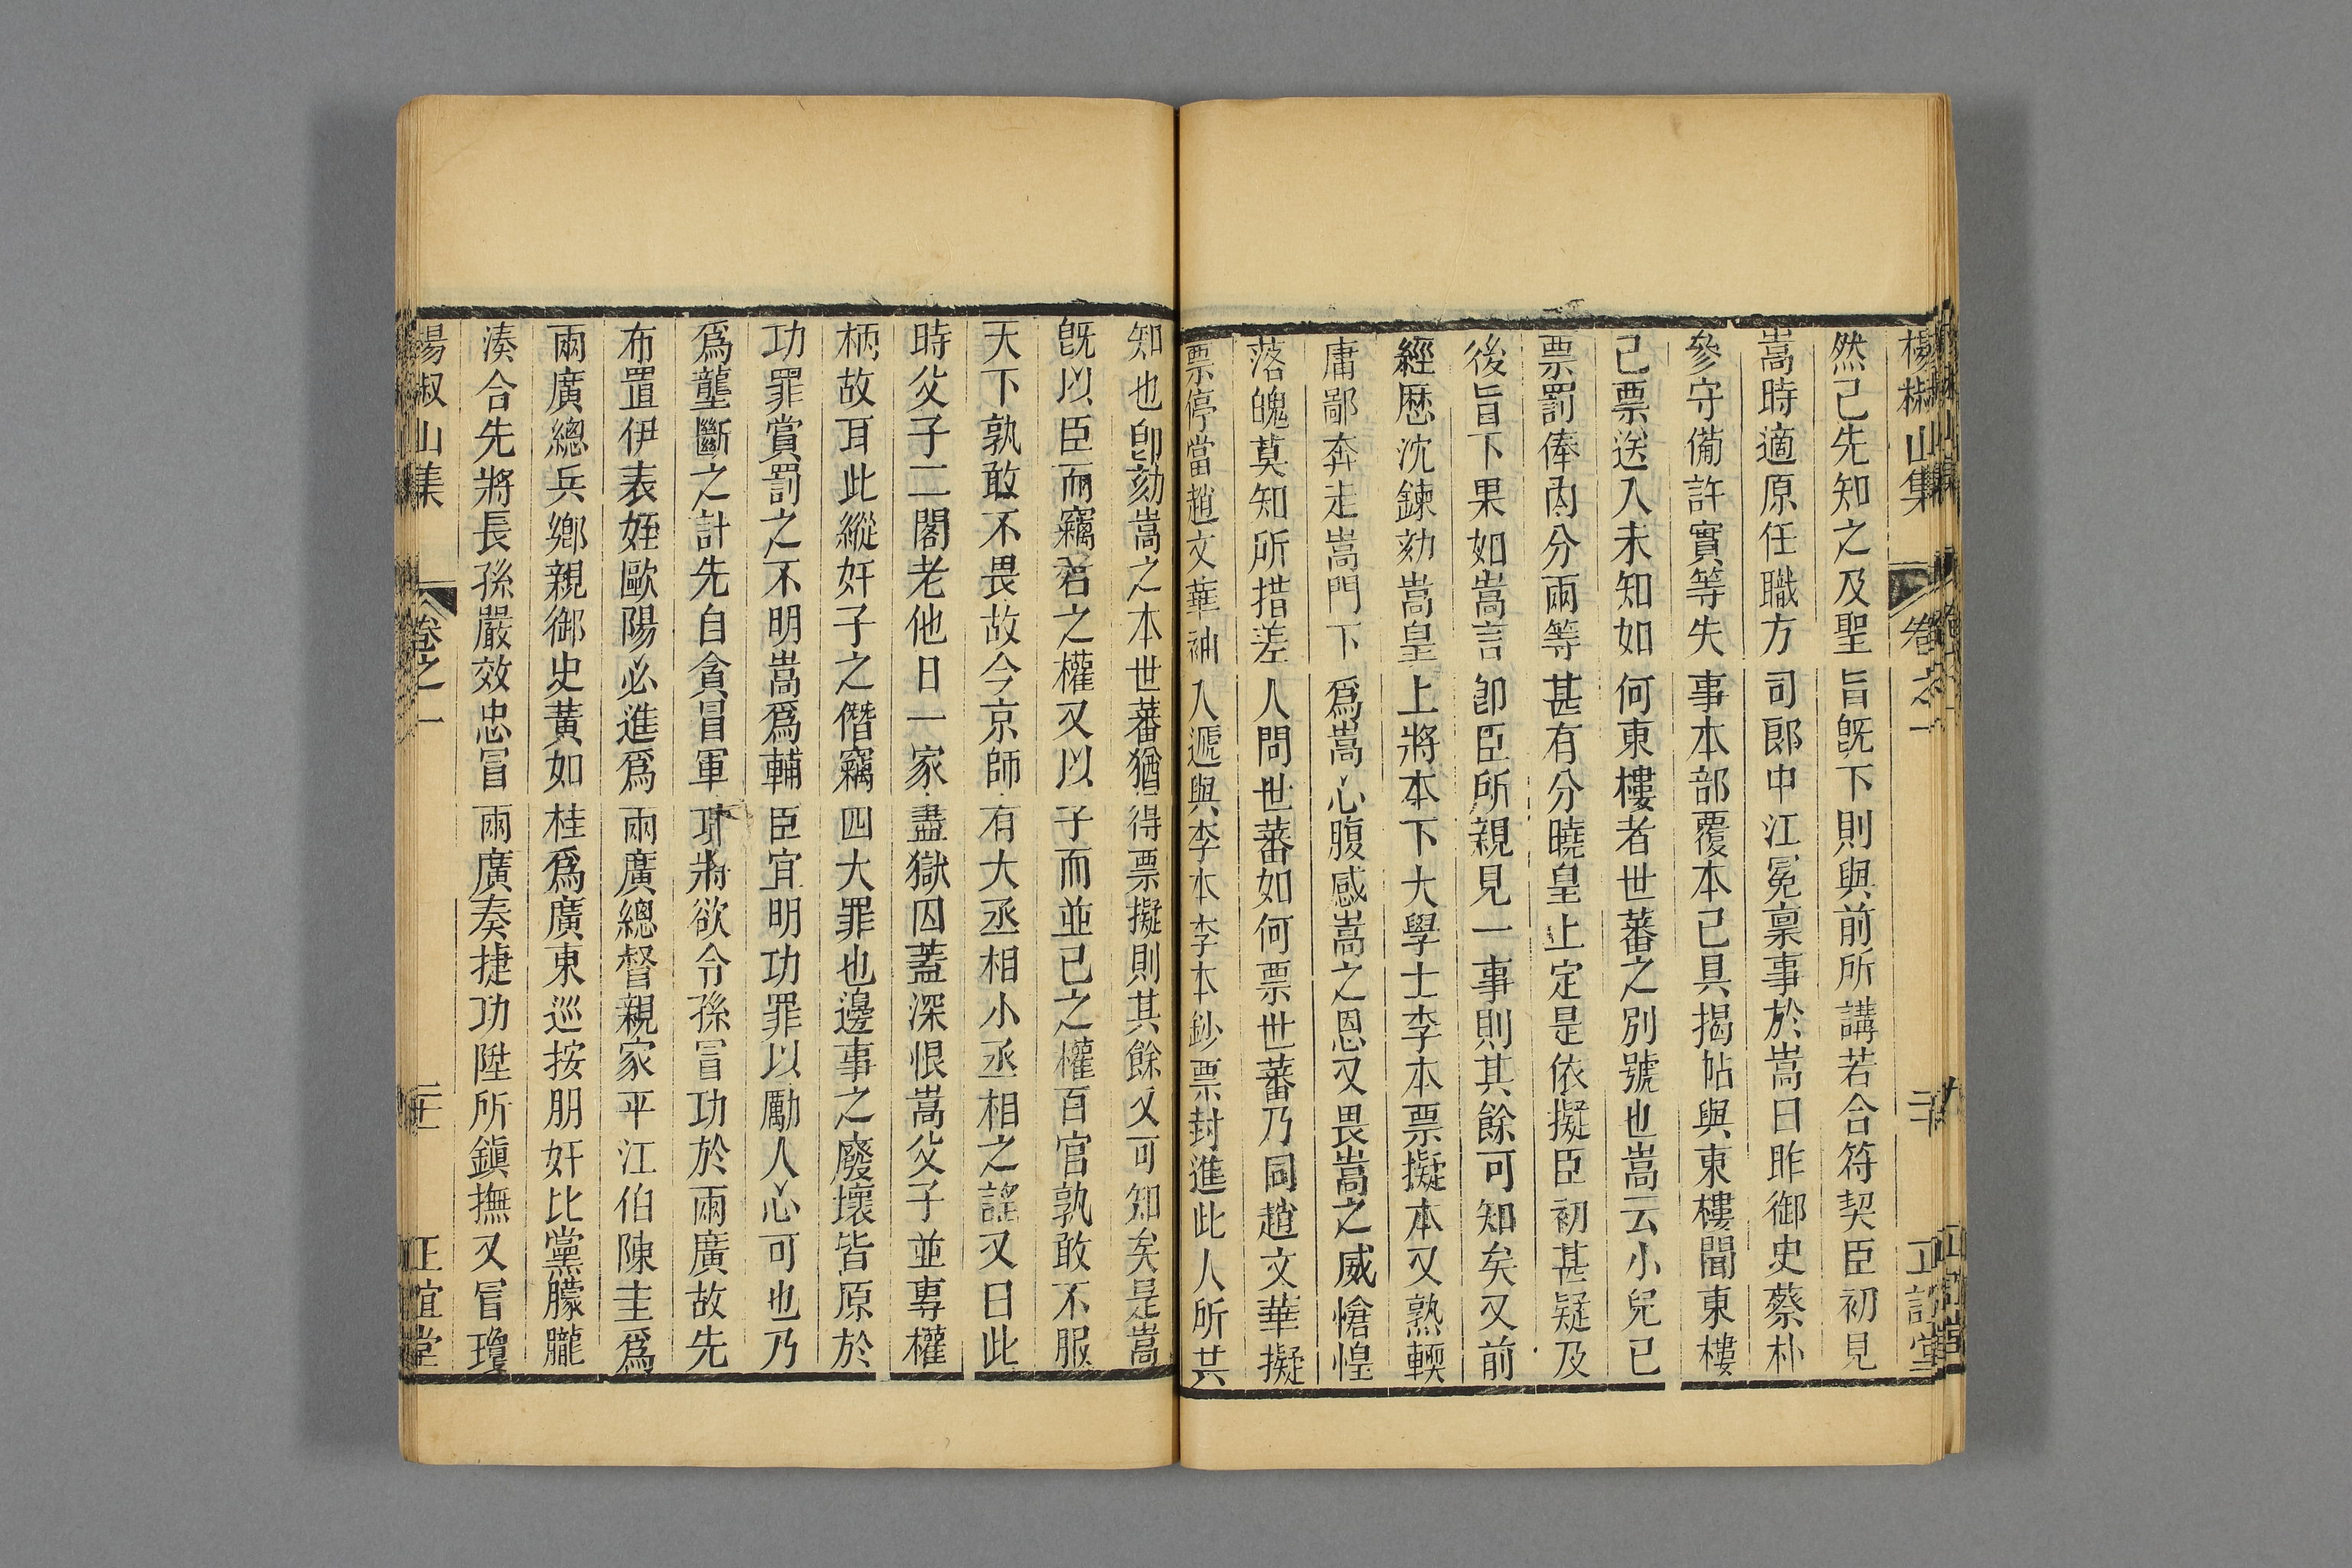 楊椒山集 卷之一 二十 正誼堂
然已先知之及聖旨既下則與前所講若合符契臣初見
嵩時適原任職方司郎中江冕稟事於嵩曰昨御史蔡朴
參守備許實等失事本部覆本已具揭帖與東樓聞東樓
已票送入未知如何東樓者世蕃之別號也嵩云小兒已
票罰俸內分兩等甚有分曉皇上定是依擬臣初甚疑及
後旨下果如嵩言卽臣所親見一事則其餘可知矣又前
經歷沈鍊劾嵩皇上將本下大學士李本票擬本又熟輭
庸鄙奔走嵩門下爲嵩心腹感嵩之恩又畏嵩之威愴惶
落魄莫知所措差人問世蕃如何票世蕃乃同趙文華擬
票停當趙文華袖入遞與李本李本鈔票封進此人所共
知也卽劾嵩之本世蕃猶得票擬則其餘又可知矣是嵩
既以臣而竊君之權又以子而並己之權百官孰敢不服
天下孰敢不畏故今京師有大丞相小丞相之謠又曰此
時父子二閣老他日一家盡獄囚蓋深恨嵩父子並專權
柄故耳此縱奸子之僭竊四大罪也邊事之廢壞皆原於
功罪賞罰之不明嵩爲輔臣宜明功罪以勵人心可也乃
爲壟斷之計先自貪冒軍功將欲令孫冒功於兩廣故先
布置伊表姪歐陽必進爲兩廣總督親家平江伯陳圭爲
兩廣總兵鄉親御史黃如桂爲廣東巡按朋奸比黨朦朧
湊合先將長孫嚴效忠冒兩廣奏捷功陞所鎮撫又冒瓊
楊椒山集 卷之一 正誼堂